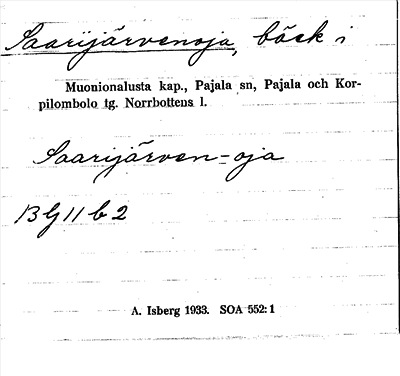 Saarijärvenoja, bäck i
Muonionalusta kap., Pajala sn, Pajala och Kor-
pilombolo tg. Norrbottens l.
Saarijärven=oja
BG 11 b 2
A. Isberg 1933. SOA 552:1